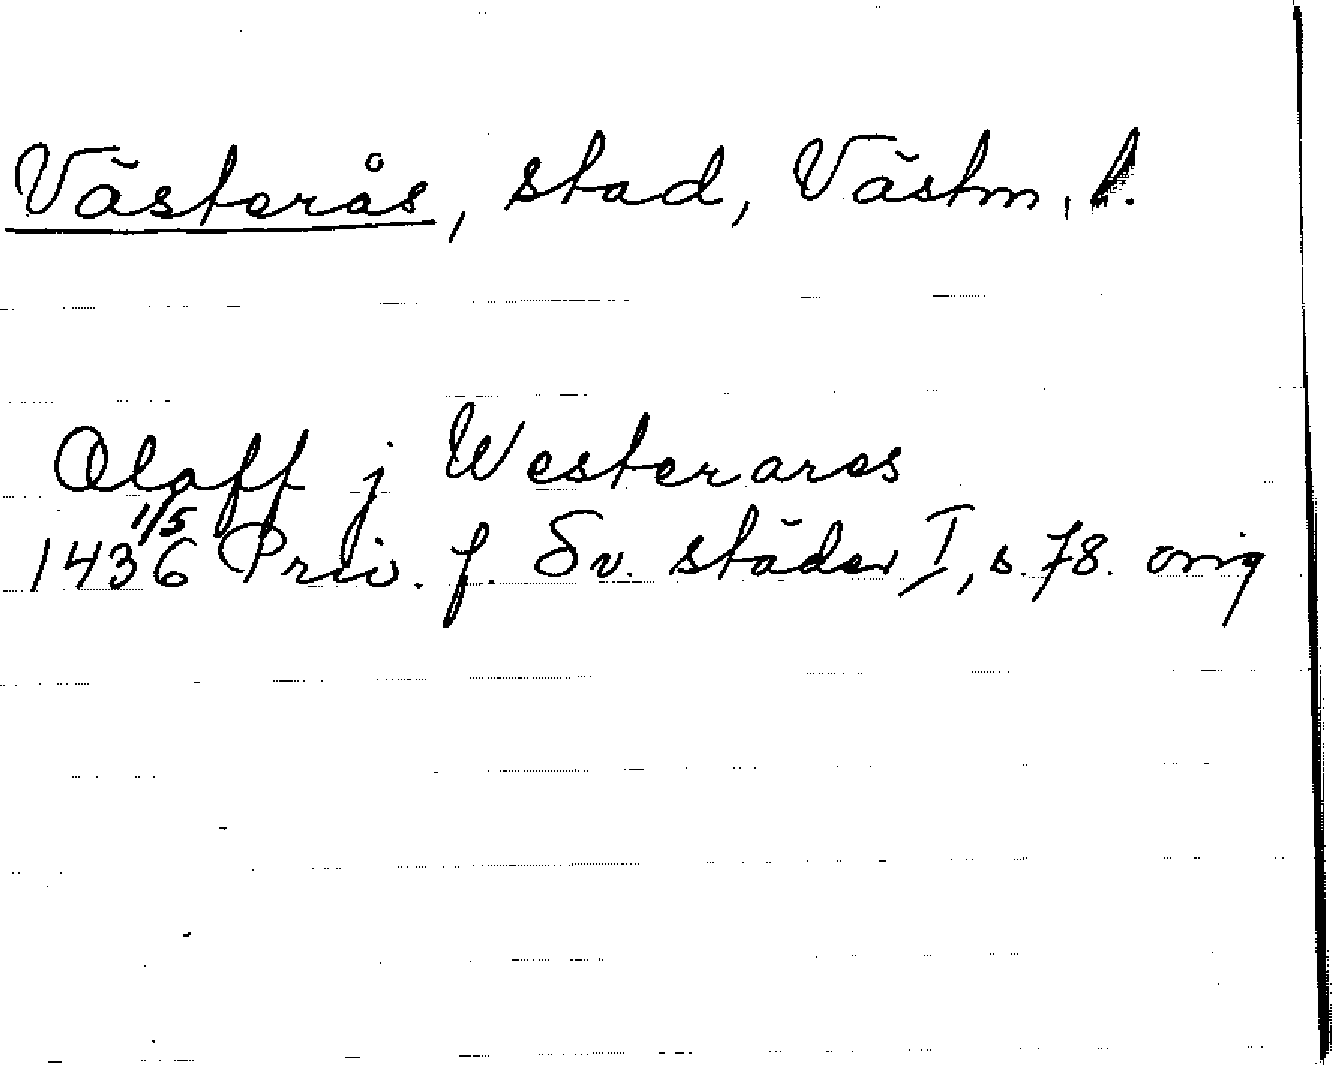 Västerås, stad, Västm. l.
Olaff j Westeraros
1436 1/5 Priv. f. Sv. städer I, s. 78. orig